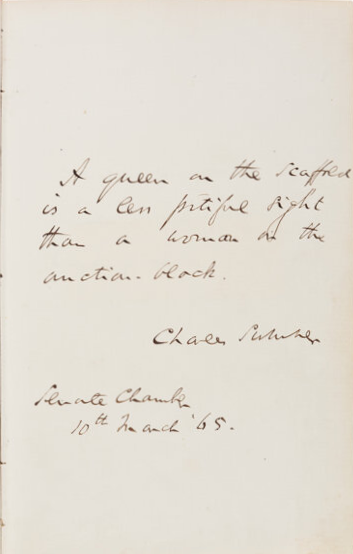 A queen on the scaffold
is a less pitiful sight
than a woman on the
auction-block.
Charles Sumner
Senate Chamber
10th March '65.